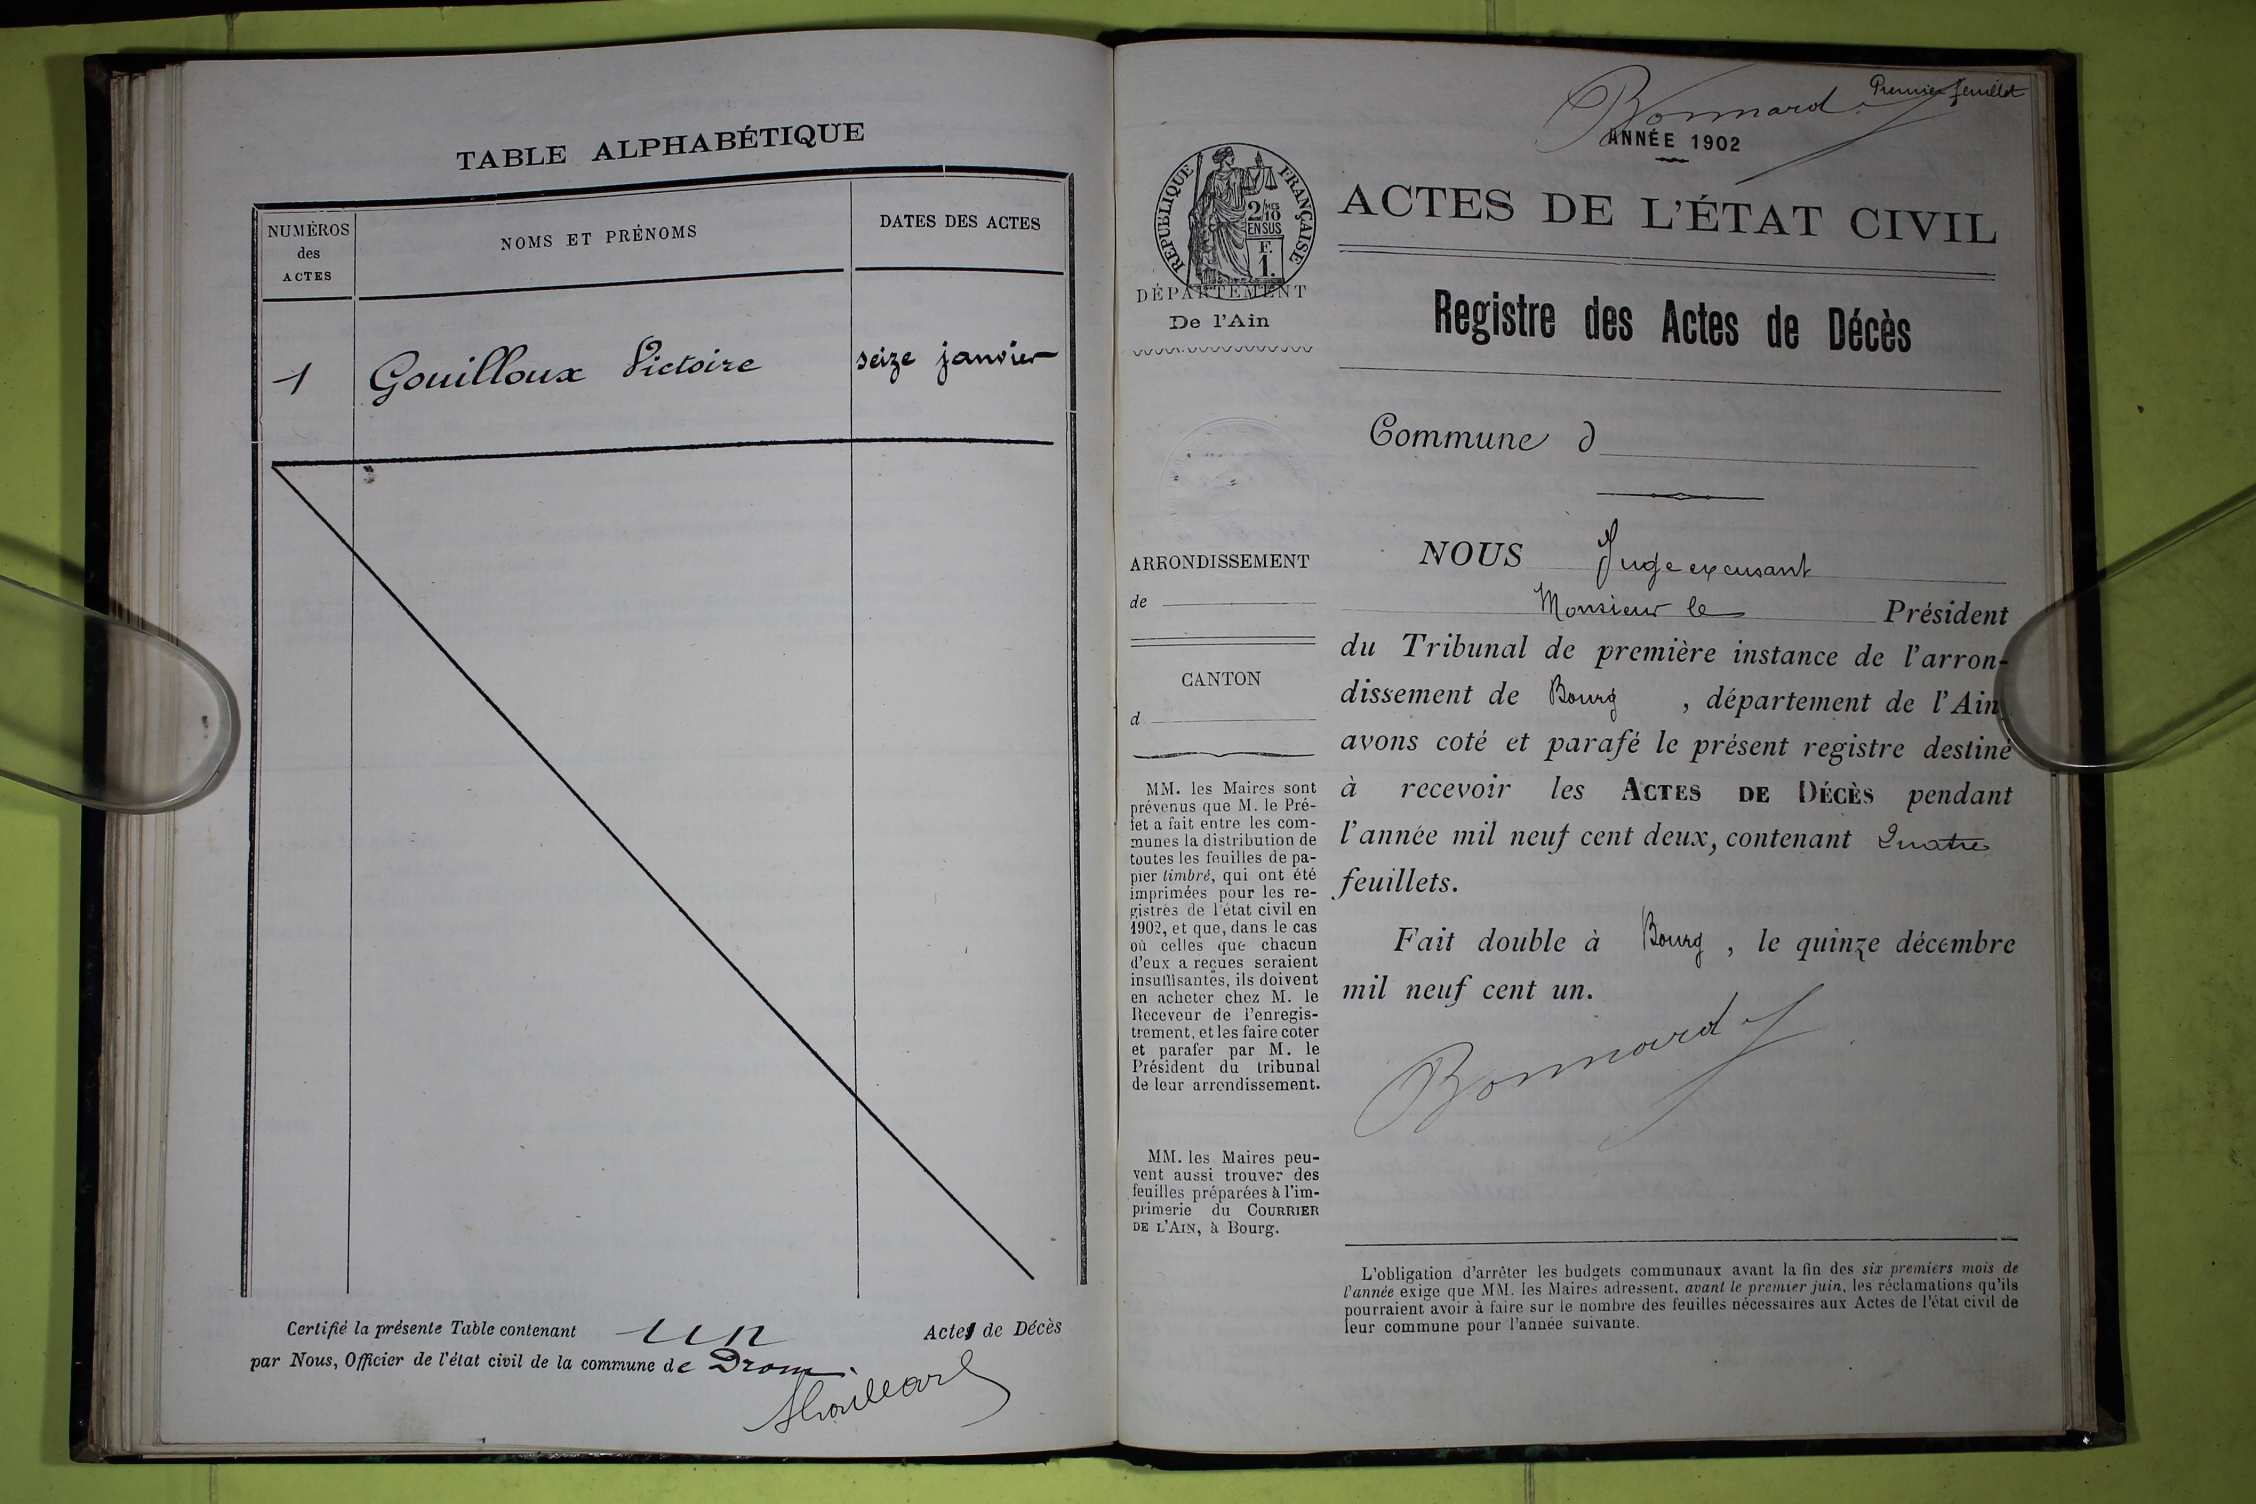 TABLE ALPHABÉTIQUE
NUMÉROS
des
ACTES
NOMS ET PRÉNOMS
DATES DES ACTES
1 Gouilloux Victoire seize janvier
Certifié la présente Table contenant un Actes de Décès
par Nous, Officier de l'état civil de la commune de Drom.
Premier feuillet
Bonnard
ANNÉE 1902
RÉPUBLIQUE FRANÇAISE
2/10 MES
EN SUS
F.
1.
DÉPARTEMENT
De l'Ain
ARRONDISSEMENT
de
CANTON
d
MM. les Maires sont
prévenus que M. le Pré-
fet a fait entre les com-
munes la distribution de
toutes les feuilles de pa-
pier timbré, qui ont été
imprimées pour les re-
gistres de l'état civil en
1902, et que, dans le cas
où celles que chacun
d'eux a reçues seraient
insuffisantes, ils doivent
en acheter chez M. le
Receveur de l'enregis-
trement, et les faire coter
et parafer par M. le
Président du tribunal
de leur arrondissement.
MM. les Maires peu-
vent aussi trouver des
feuilles préparées à l'im-
primerie du COURRIER
DE L'AIN, à Bourg.
ACTES DE L'ÉTAT CIVIL
Registre des Actes de Décès
Commune d
NOUS Juge excusant
Monsieur le Président
du Tribunal de première instance de l'arron-
dissement de Bourg , département de l'Ain,
avons coté et parafé le présent registre destiné
à recevoir les ACTES DE DÉCÈS pendant
l'année mil neuf cent deux, contenant Quatre
feuillets.
Fait double à Bourg , le quinze décembre
mil neuf cent un.
Bonnard
L'obligation d'arrêter les budgets communaux avant la fin des six premiers mois de
l'année exige que MM. les Maires adressent, avant le premier juin, les réclamations qu'ils
pourraient avoir à faire sur le nombre des feuilles nécessaires aux Actes de l'état civil de
leur commune pour l'année suivante.